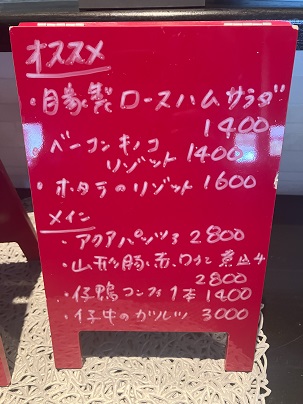 オススメ
・自家製ロースハムサラダ
1400
・ベーコンキノコ
リゾット 1400
・ホタテのリゾット 1600
メイン
・アクアパッツァ 2800
・山形豚、赤ワイン煮込み
2800
・仔鴨コンフィ1本 1400
・仔牛のカツレツ 3000